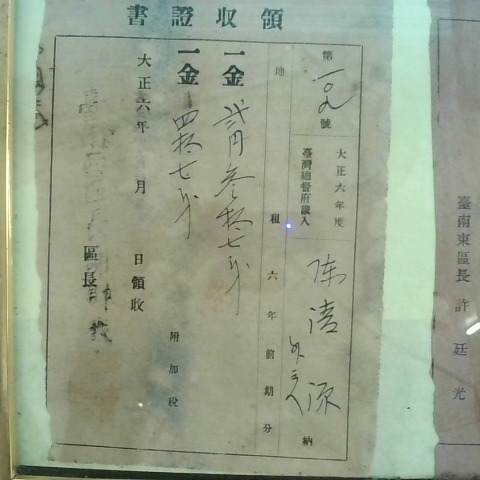 領收證書
第一〇九號
大正六年度
臺灣總督府歲入
陳清源
外三人
納
地租 六年前期分
一金 貳円參拾七戋
一金 四拾七戋
附加稅
大正六年 月 日領收
區長
臺南東區長 許廷光